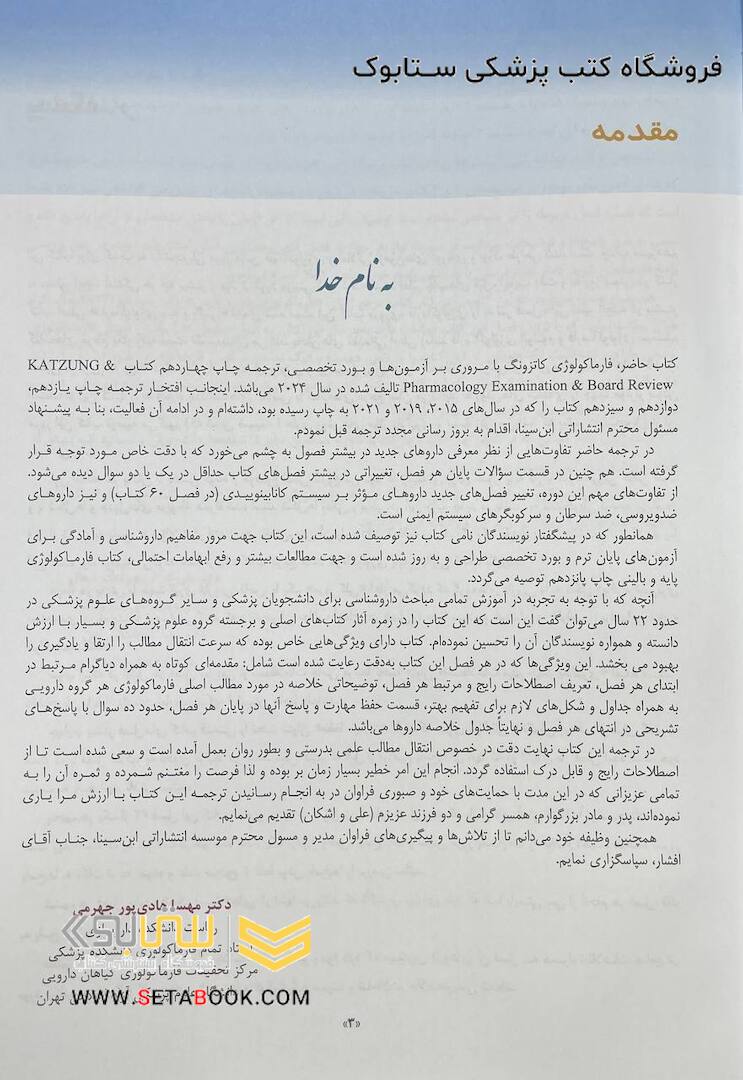 فروشگاه کتب پزشکی ستابوک
مقدمه
به نام خدا
کتاب حاضر، فارماکولوژی کاتزونگ با مروری بر آزمون‌ها و بورد تخصصی، ترجمه چاپ چهاردهم کتاب KATZUNG &
Pharmacology Examination & Board Review تالیف شده در سال ۲۰۲۴ می‌باشد. اینجانب افتخار ترجمه چاپ یازدهم،
دوازدهم و سیزدهم کتاب را که در سال‌های ۲۰۱۵، ۲۰۱۹ و ۲۰۲۱ به چاپ رسیده بود، داشته‌ام و در ادامه آن فعالیت، بنا به پیشنهاد
مسئول محترم انتشاراتی ابن‌سینا، اقدام به بروز رسانی مجدد ترجمه قبل نمودم.
در ترجمه حاضر تفاوت‌هایی از نظر معرفی داروهای جدید در بیشتر فصول به چشم می‌خورد که با دقت خاص مورد توجه قرار
گرفته است. هم چنین در قسمت سؤالات پایان هر فصل، تغییراتی در بیشتر فصل‌های کتاب حداقل در یک یا دو سوال دیده می‌شود.
از تفاوت‌های مهم این دوره، تغییر فصل‌های جدید داروهای مؤثر بر سیستم کانابینوییدی (در فصل ۶۰ کتاب) و نیز داروهای
ضدویروسی، ضد سرطان و سرکوبگرهای سیستم ایمنی است.
همانطور که در پیشگفتار نویسندگان نامی کتاب نیز توصیف شده است، این کتاب جهت مرور مفاهیم داروشناسی و آمادگی برای
آزمون‌های پایان ترم و بورد تخصصی طراحی و به روز شده است و جهت مطالعات بیشتر و رفع ابهامات احتمالی، کتاب فارماکولوژی
پایه و بالینی چاپ پانزدهم توصیه می‌گردد.
آنچه که با توجه به تجربه در آموزش تمامی مباحث داروشناسی برای دانشجویان پزشکی و سایر گروه‌های علوم پزشکی در
حدود ۲۲ سال می‌توان گفت این است که این کتاب را در زمره آثار کتاب‌های اصلی و برجسته گروه علوم پزشکی و بسیار با ارزش
دانسته و همواره نویسندگان آن را تحسین نموده‌ام. کتاب دارای ویژگی‌هایی خاص بوده که سرعت انتقال مطالب را ارتقا و یادگیری را
بهبود می بخشد. این ویژگی‌ها که در هر فصل این کتاب به‌دقت رعایت شده است شامل: مقدمه‌ای کوتاه به همراه دیاگرام مرتبط در
ابتدای هر فصل، تعریف اصطلاحات رایج و مرتبط هر فصل، توضیحاتی خلاصه در مورد مطالب اصلی فارماکولوژی هر گروه دارویی
به همراه جداول و شکل‌های لازم برای تفهیم بهتر، قسمت حفظ مهارت و پاسخ آنها در پایان هر فصل، حدود ده سوال با پاسخ‌های
تشریحی در انتهای هر فصل و نهایتاً جدول خلاصه داروها می‌باشد.
در ترجمه این کتاب نهایت دقت در خصوص انتقال مطالب علمی بدرستی و بطور روان بعمل آمده است و سعی شده است تا از
اصطلاحات رایج و قابل درک استفاده گردد. انجام این امر خطیر بسیار زمان بر بوده و لذا فرصت را مغتنم شمرده و ثمره آن را به
تمامی عزیزانی که در این مدت با حمایت‌های خود و صبوری فراوان در به انجام رسانیدن ترجمه این کتاب با ارزش مرا یاری
نموده‌اند، پدر و مادر بزرگوارم، همسر گرامی و دو فرزند عزیزم (علی و اشکان) تقدیم می‌نمایم.
همچنین وظیفه خود می‌دانم تا از تلاش‌ها و پیگیری‌های فراوان مدیر و مسول محترم موسسه انتشاراتی ابن‌سینا، جناب آقای
افشار، سپاسگزاری نمایم.
دکتر مهسا هادی‌پور جهرمی
تمام فارماکولوژی دانشکده پزشکی
مرکز تحقیقات فارماکولوژی گیاهان دارویی
تهران
ستابوک
WWW.SETABOOK.COM
«۳»